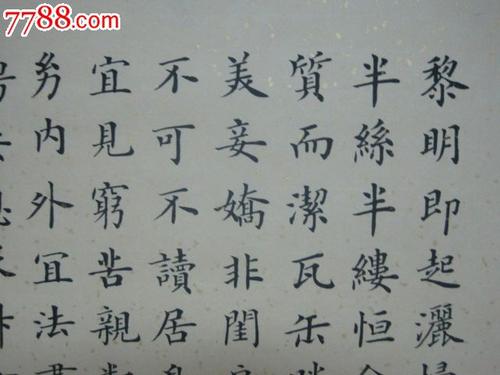 7788.com
黎明即起灑
半絲半縷恒
質而潔瓦缶
美妾嬌非閨
不可不讀居
宜見窮苦親
幼內外冝法